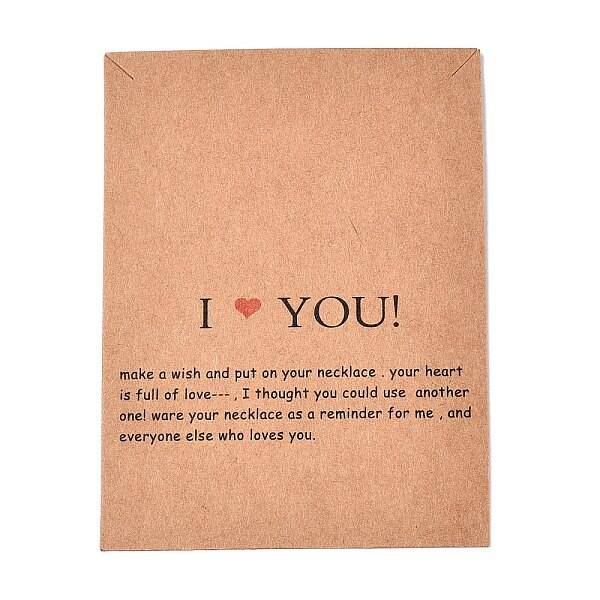 I ❤ YOU!
make a wish and put on your necklace . your heart
is full of love--- , I thought you could use another
one! ware your necklace as a reminder for me , and
everyone else who loves you.